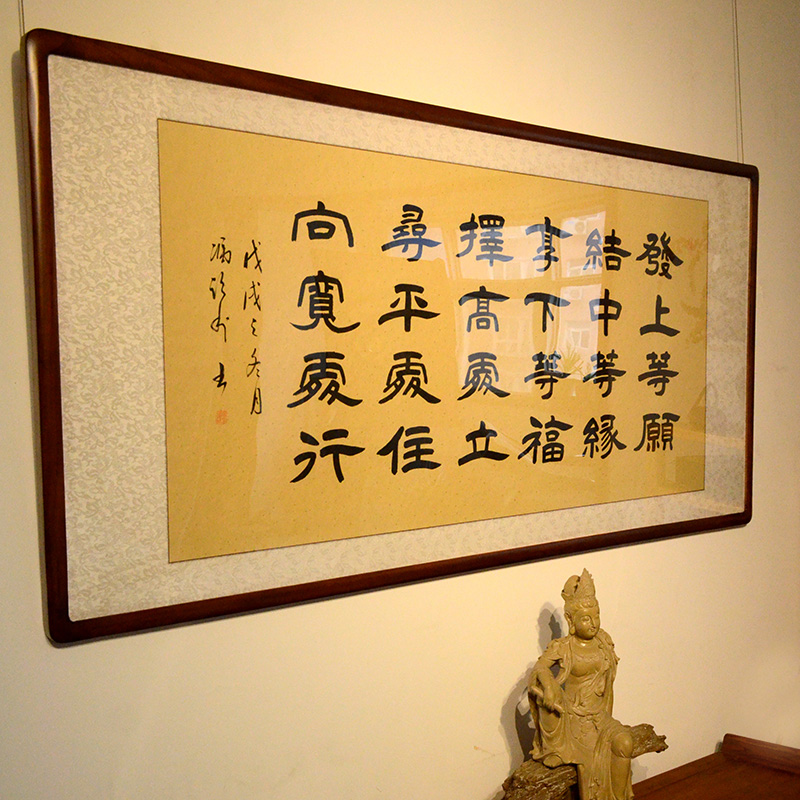 發上等願
結中等緣
享下等福
擇高處立
尋平處住
向寬處行
戊戌之冬月